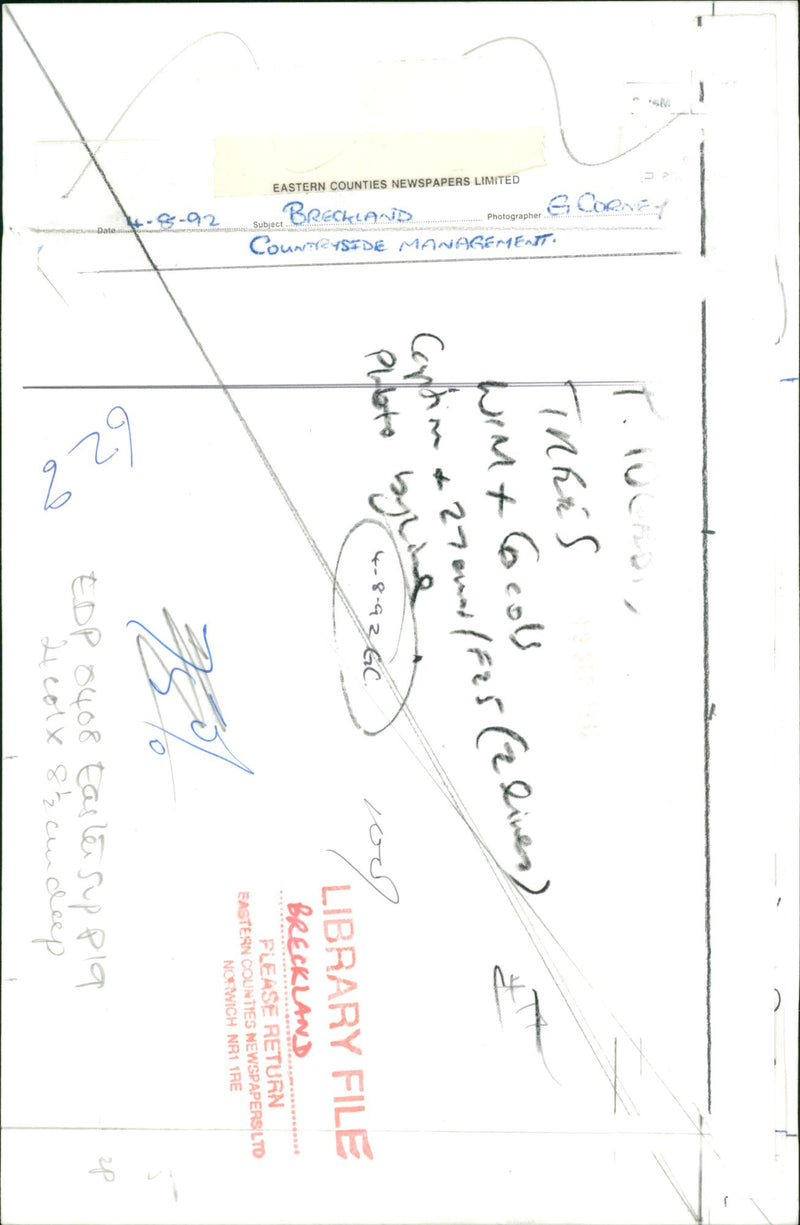 EASTERN COUNTIES NEWSPAPERS LIMITED
Date 4-8-92 Subject BRECKLAND Photographer G CORNEY
COUNTRYSIDE MANAGEMENT.
TREES
WIM + 6 cols
Caption + 27 ems/F25 (2 lines)
Photo byline
4-8-92 GC.
62
75%
EDP 0408 Easter Sup P19
4 col x 8½ cm deep
LIBRARY FILE
BRECKLAND
PLEASE RETURN
EASTERN COUNTIES NEWSPAPERS LTD
NORWICH NR1 1RE